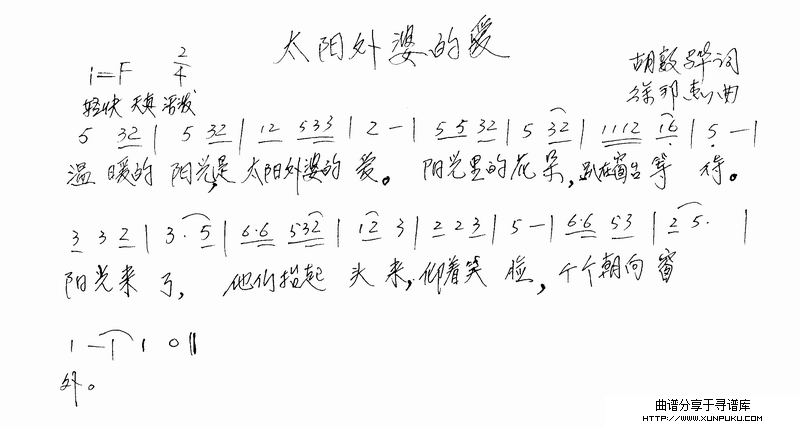 太阳外婆的爱
1=F 2/4
胡敦骅词
徐邦杰曲
轻快 天真 活泼
5 32 | 5 32 | 12 533 | 2 - | 55 32 | 5 32 | 1112 16 | 5 - |
温暖的 阳光,是 太阳外婆的 爱。 阳光里的花朵,趴在窗台等 待。
3 3 2 | 3. 5 | 6.6 532 | 12 3 | 2 2 3 | 5 - | 6.6 53 | 2 5. |
阳光来 了, 他们抬起 头 来,仰着笑 脸,个个朝向 窗
1 - | 1 0 ‖
外。
曲谱分享于寻谱库
HTTP://WWW.XUNPUKU.COM